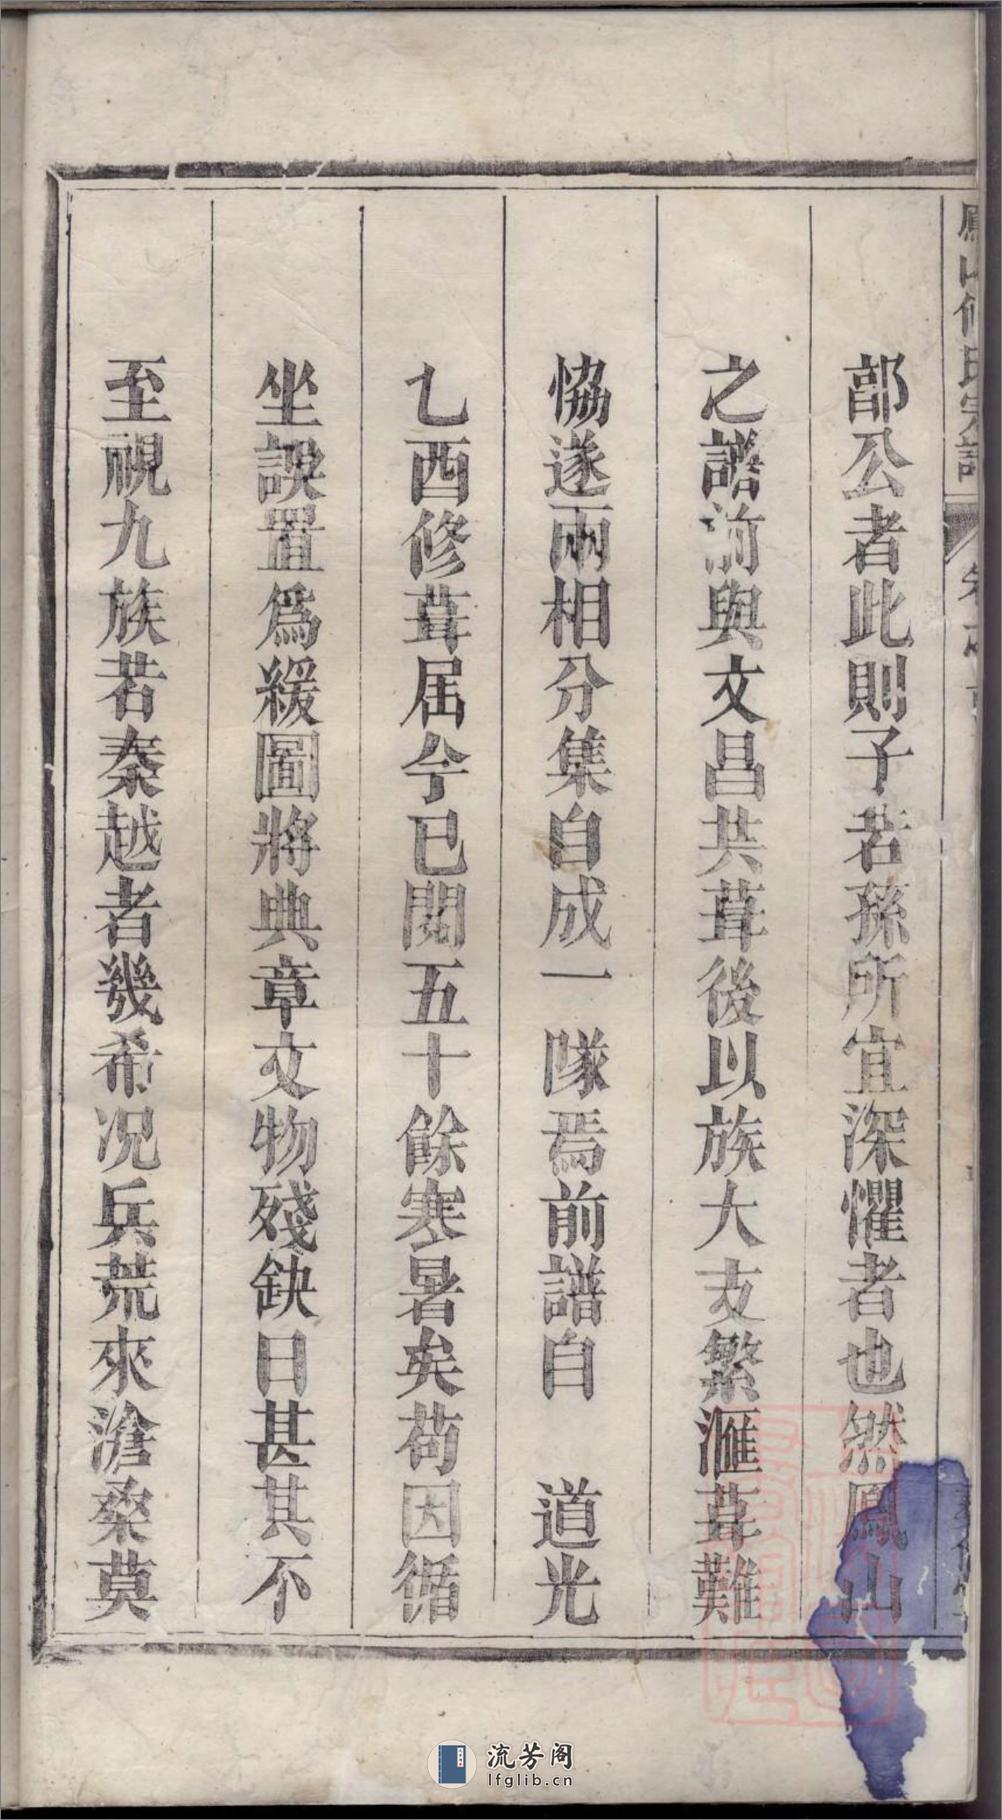 部公者此則子若孫所宜深懼者也然鳳山
之譜前與文昌共葺後以族大支繁滙葺難
恊遂兩相分集自成一隊焉前譜自　道光
乙酉修葺届今已閱五十餘寒暑矣苟因循
坐誤置爲緩圖將典章文物殘缺日甚其不
至視九族若秦越者幾希况兵荒來滄桑莫
流芳阁
lfglib.cn